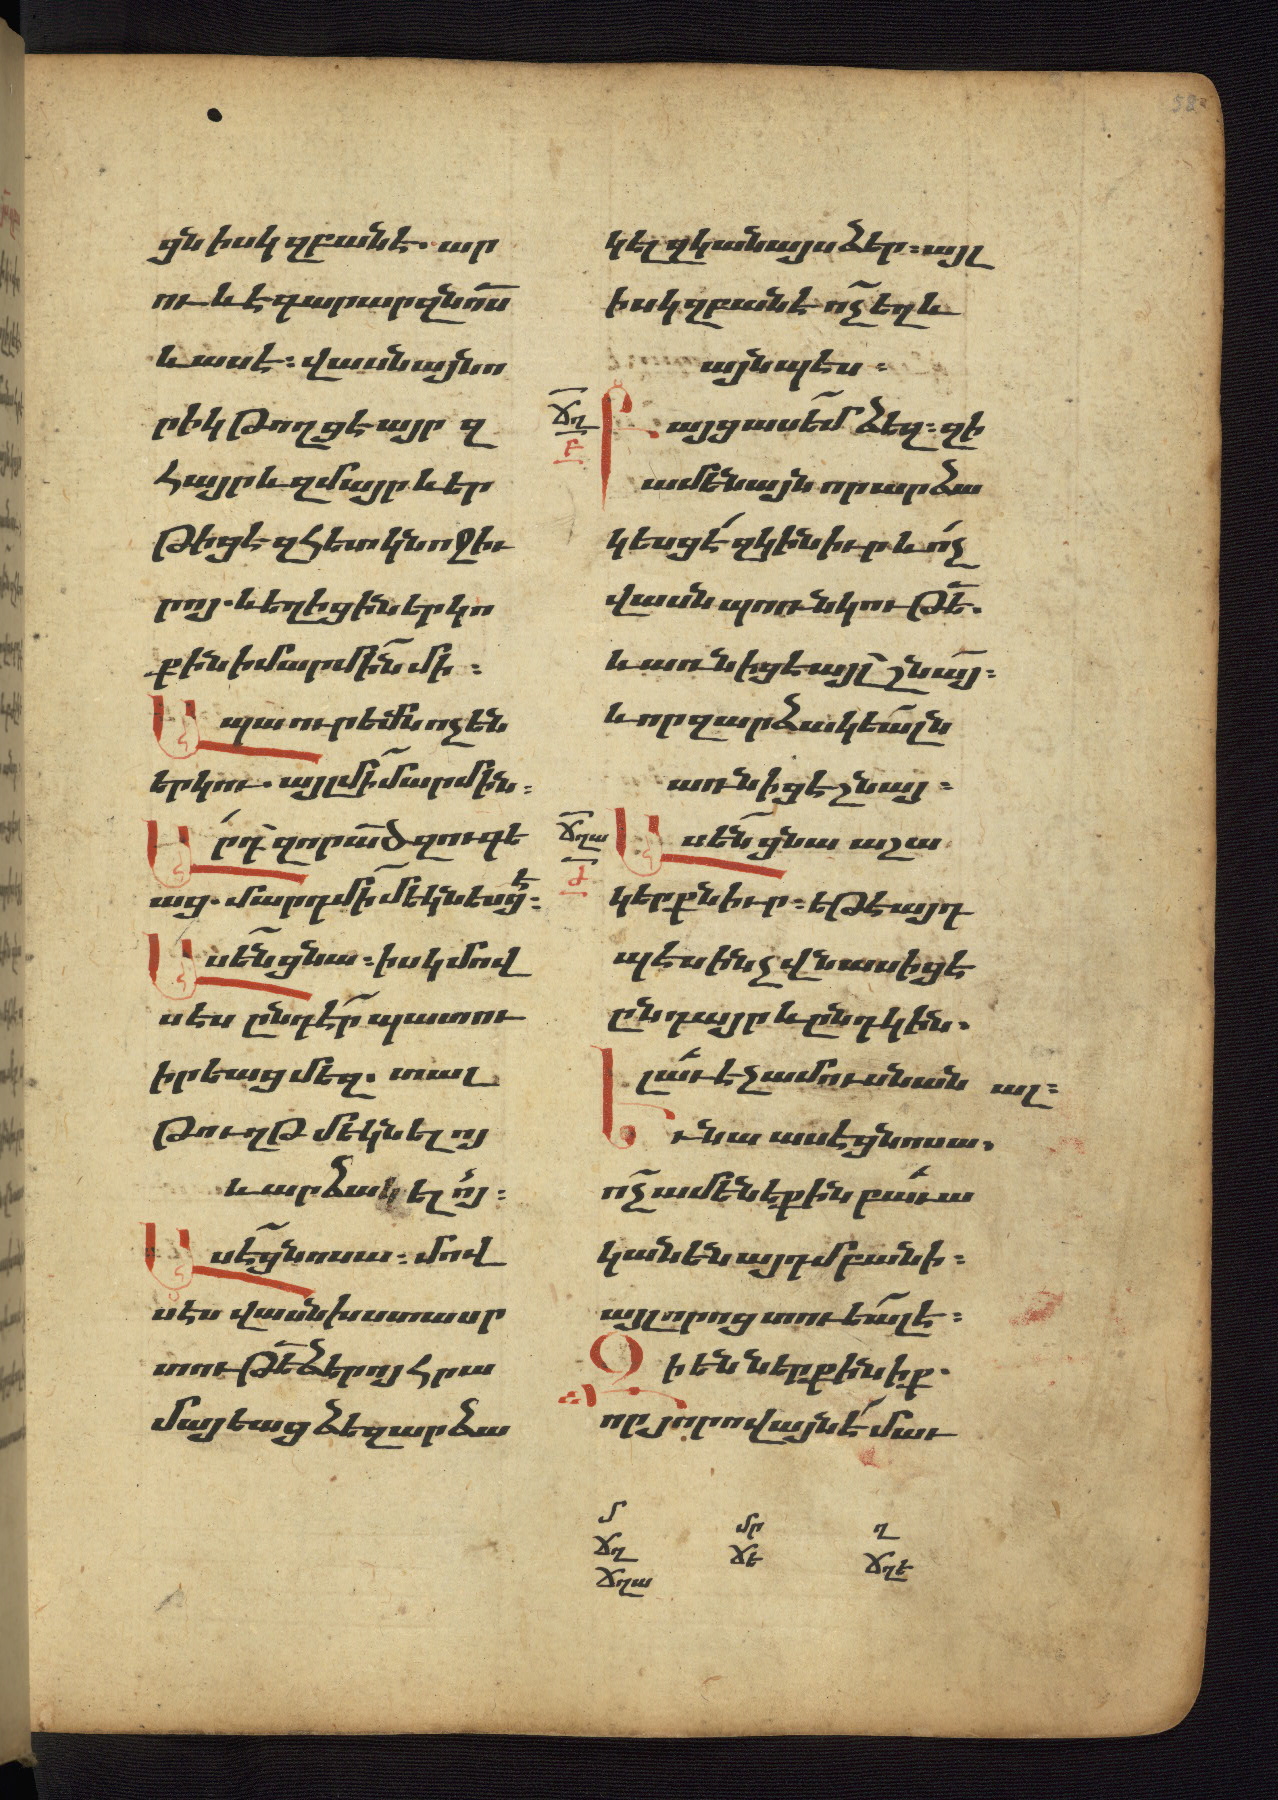 ցն իսկ զբանէ. ար
ու և էգ արար զնոս̅
և ասէ։ վասն այնո
րիկ թողցէ այր զ
հայր և զմայր և եր
թիցէ զհետ կնոջ իւ
րոյ. և եղիցին երկո
քին ի մարմի̅ն մի։
Ապա ուրեմն ոչ են
երկու. այլ մի̅ մարմին։
Արդ՝ զոր ա̅ծ զուգե
աց. մարդ մի̅ մեկնեսցէ̅։
Ասե̅ն ցնա։ իսկ մով
սէս ընդէ̅ր պատու
իրեաց մեզ. տալ
թուղթ մեկնելոյ
և արձակելո՛յ։
Ասէ̅ ցնոսա։ մով
սէս վասն խստասր
տութե̅ ձերոյ հրա
մայեաց ձեզ արձա
կել զկանայս ձեր։ այլ
ի սկզբանէ ո̅չ եղև
այնպէս։
ՃՂ
Է
Բայց ասե̅մ ձեզ։ զի
ամենայն որ արձա
կեսցէ́ զկին իւր և ո́չ
վասն պոռնկութե̅.
և առնիցէ այլ՝ շնա̅յ։
և որ զարձակեա̅լն
առնիցէ շնայ։
ՃՂԱ
Ժ
Ասե̅ն ցնա աշա
կերքն իւր։ եթէ այդ
պէս ինչ վնաս իցէ
ընդ այր և ընդ կին.
լա́ւ է չամուսնանալ։
Եւ նա ասէ ցնոսա.
ո̅չ ամենեքին բա́ւա
կան են այդմ բանի։
այլ որոց տուեա̅լ է։
Զի են ներքինիք.
որ յորովայնէ́ մաւ
Մ
ՃՂ
ՃՂԱ
ՄՐ
ՃԵ
Ղ
ՃՂԷ
58